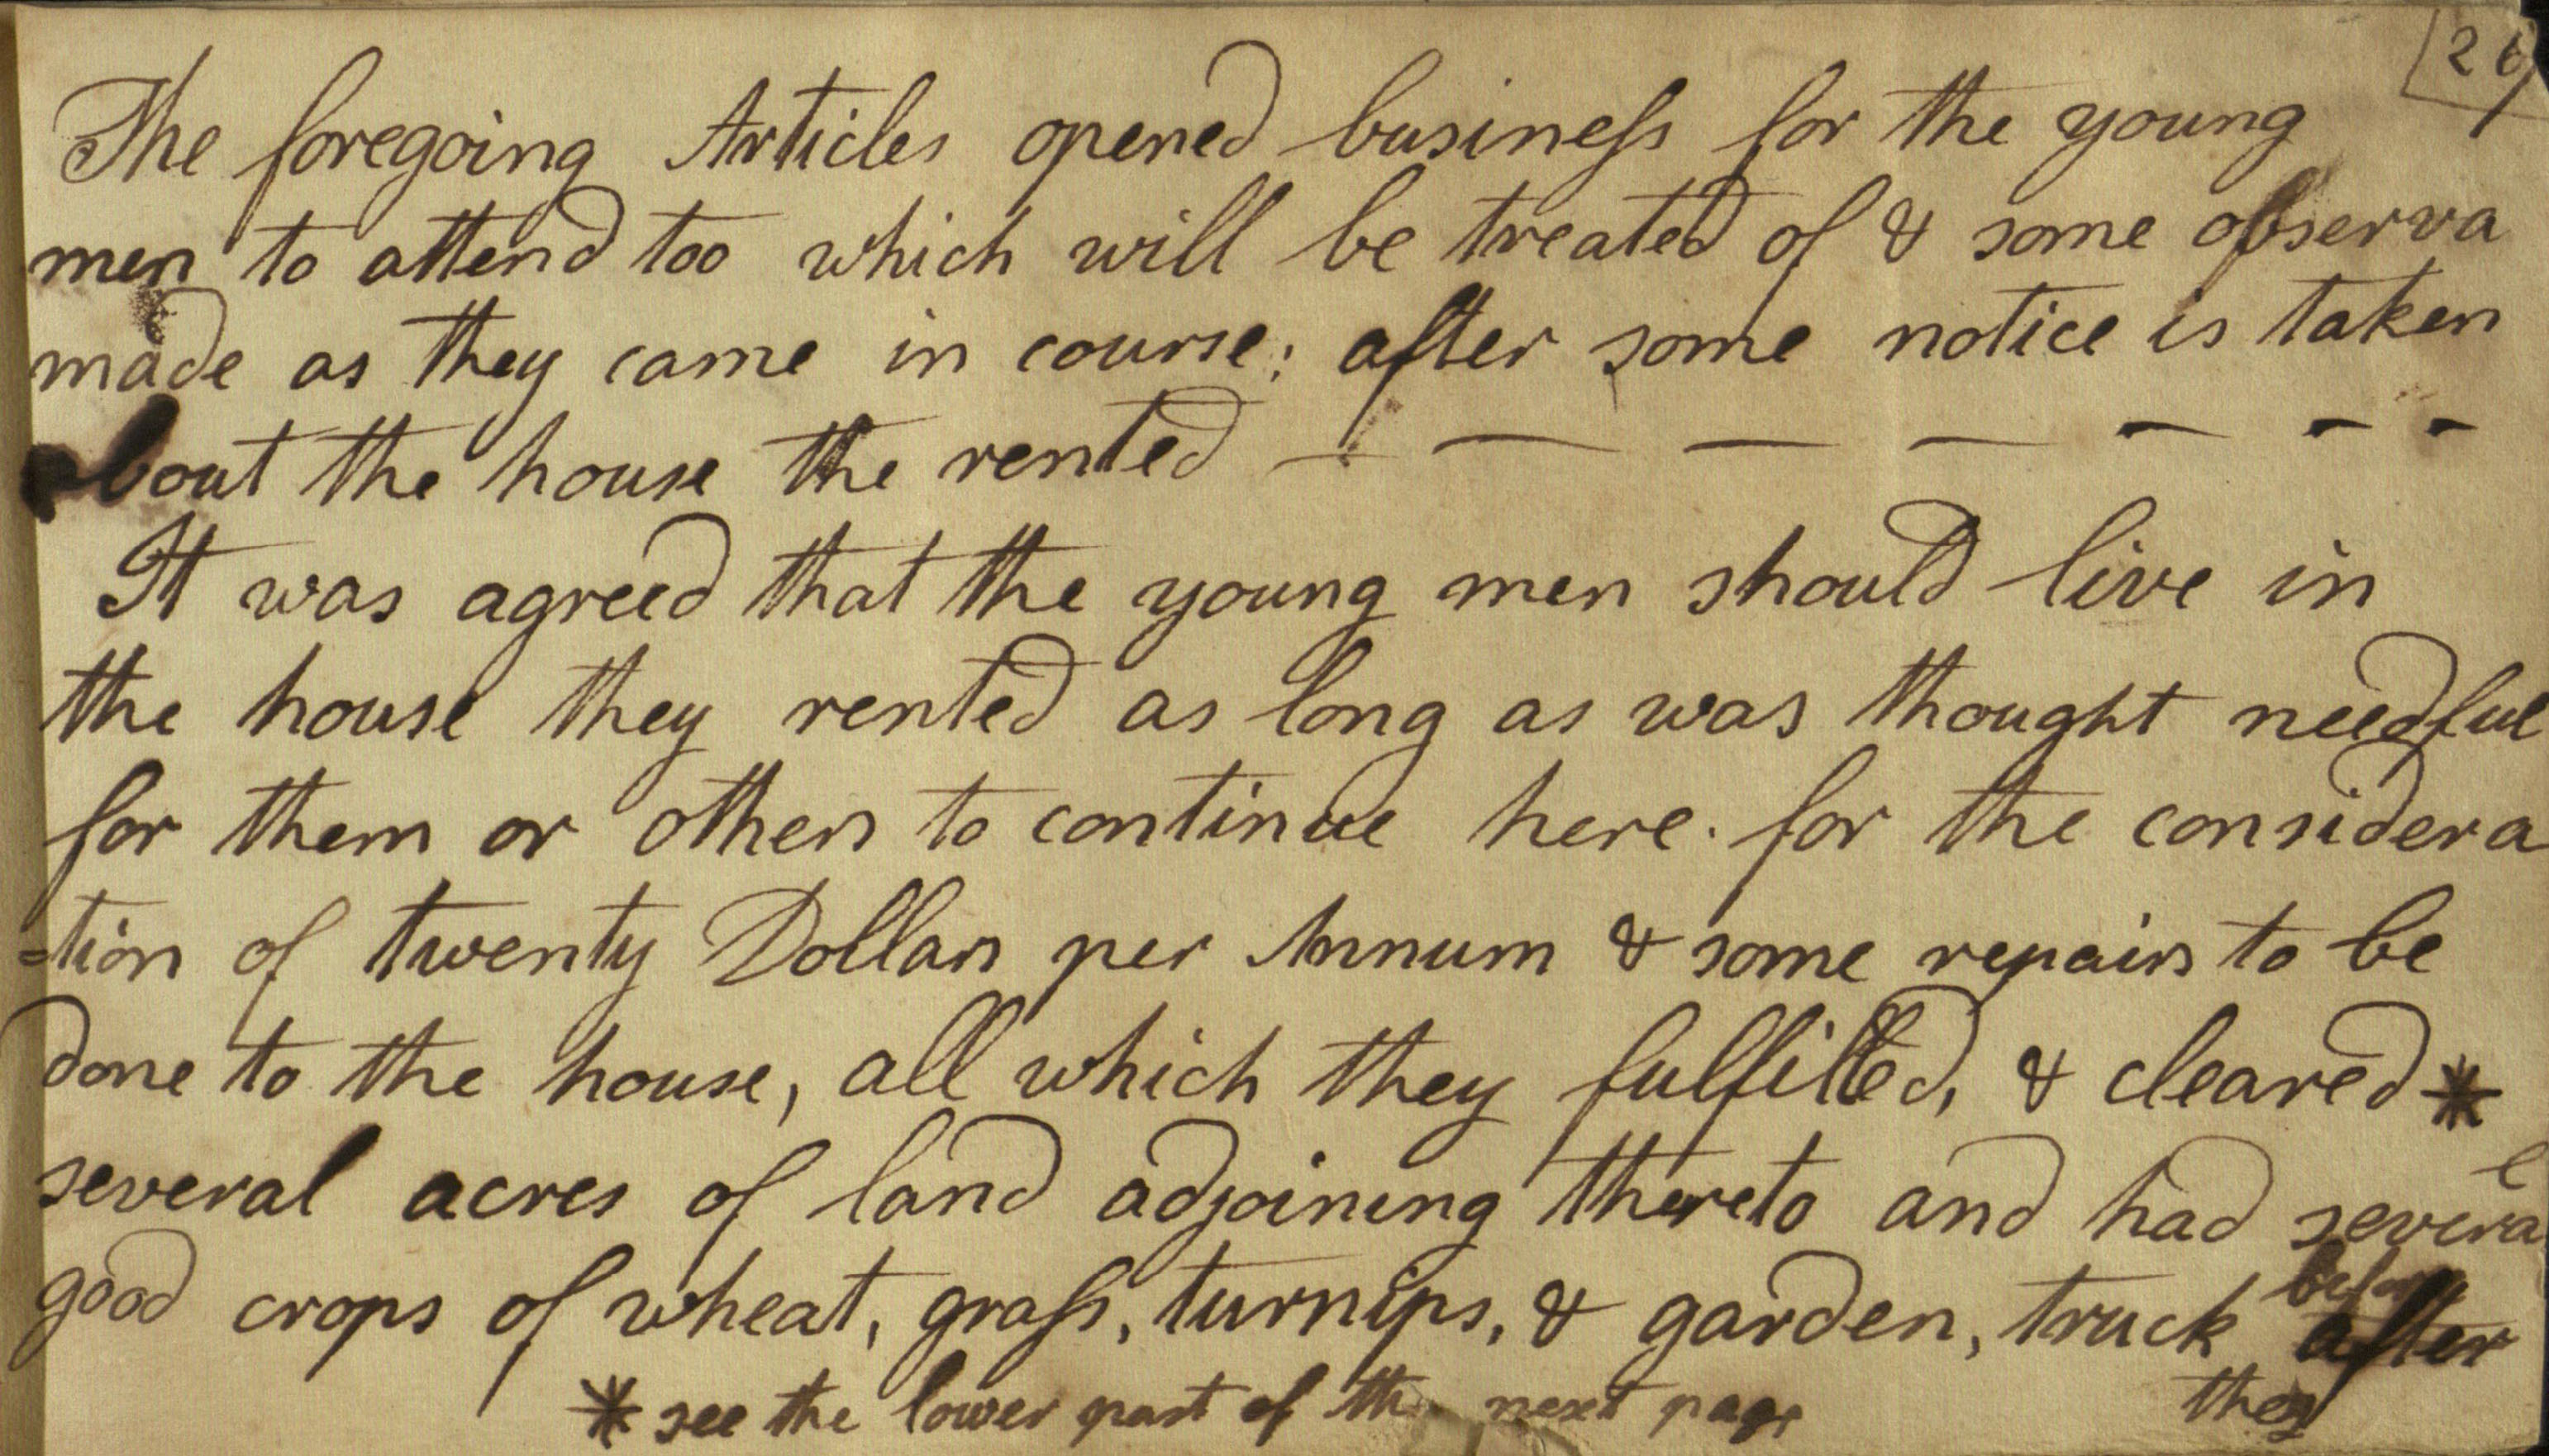 26
The foregoing Articles opened business for the young
men to attend too which will be treated of & some observa
made as they came in course; after some notice is taken
about the house the rented — — — — — - -
It was agreed that the young men should live in
the house they rented as long as was thought needful
for them or others to continue here. for the considera
=tion of twenty Dollars per Annum & some repairs to be
done to the house, all which they fulfilled, & cleared *
several acres of land adjoining thereto and had several
good crops of wheat, grass, turnips, & garden, truck before after
* see the lower part of the next page they